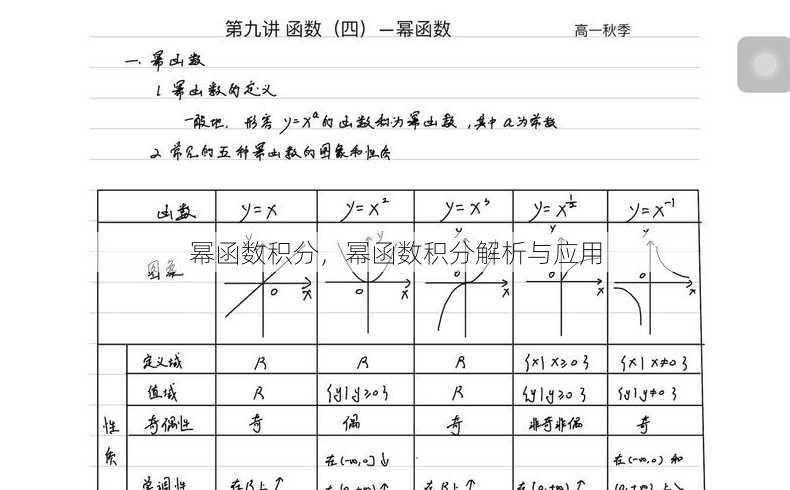 第九讲 函数（四）—幂函数 高一秋季
一. 幂函数
1. 幂函数的定义
一般地，形容 y=x^a 的函数称为幂函数，其中 a 为常数
2. 常见的五种幂函数的图象和性质
函数 y=x y=x² y=x³ y=x^½ y=x⁻¹
幂函数积分，幂函数积分解析与应用
图象
定义域 R R R {x|x≥0} {x|x≠0}
值域 R {y|y≥0} R {y|y≥0} {y|y≠0}
性质 奇偶性 奇 偶 奇 非奇非偶 奇
在(-∞,0]↓ 在(-∞,0)和
单调性 在R上↑ 在R上↑